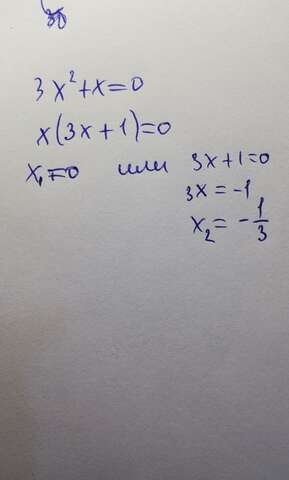 30
3x²+x=0
x(3x+1)=0
x₁=0 или 3x+1=0
3x=-1
x₂=-1/3